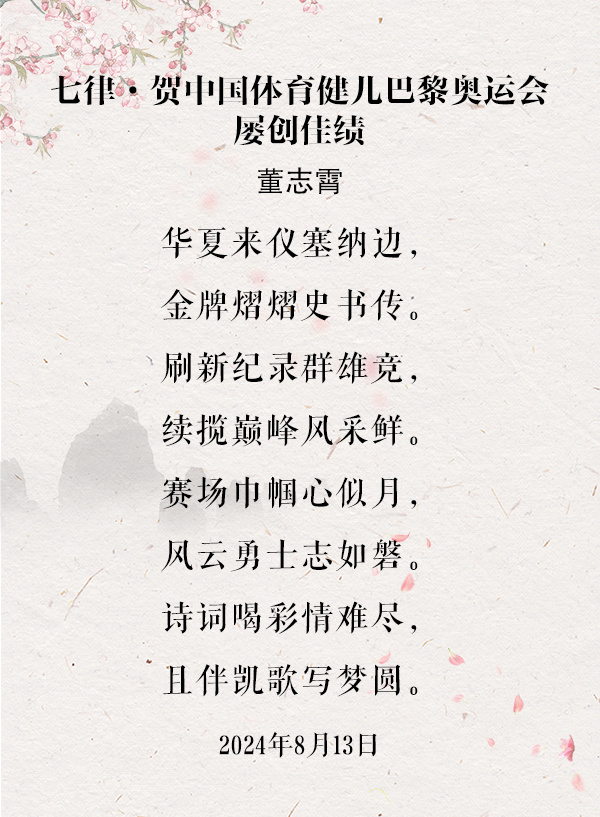 七律·贺中国体育健儿巴黎奥运会
屡创佳绩
董志霄
华夏来仪塞纳边，
金牌熠熠史书传。
刷新纪录群雄竞，
续揽巅峰风采鲜。
赛场巾帼心似月，
风云勇士志如磐。
诗词喝彩情难尽，
且伴凯歌写梦圆。
2024年8月13日